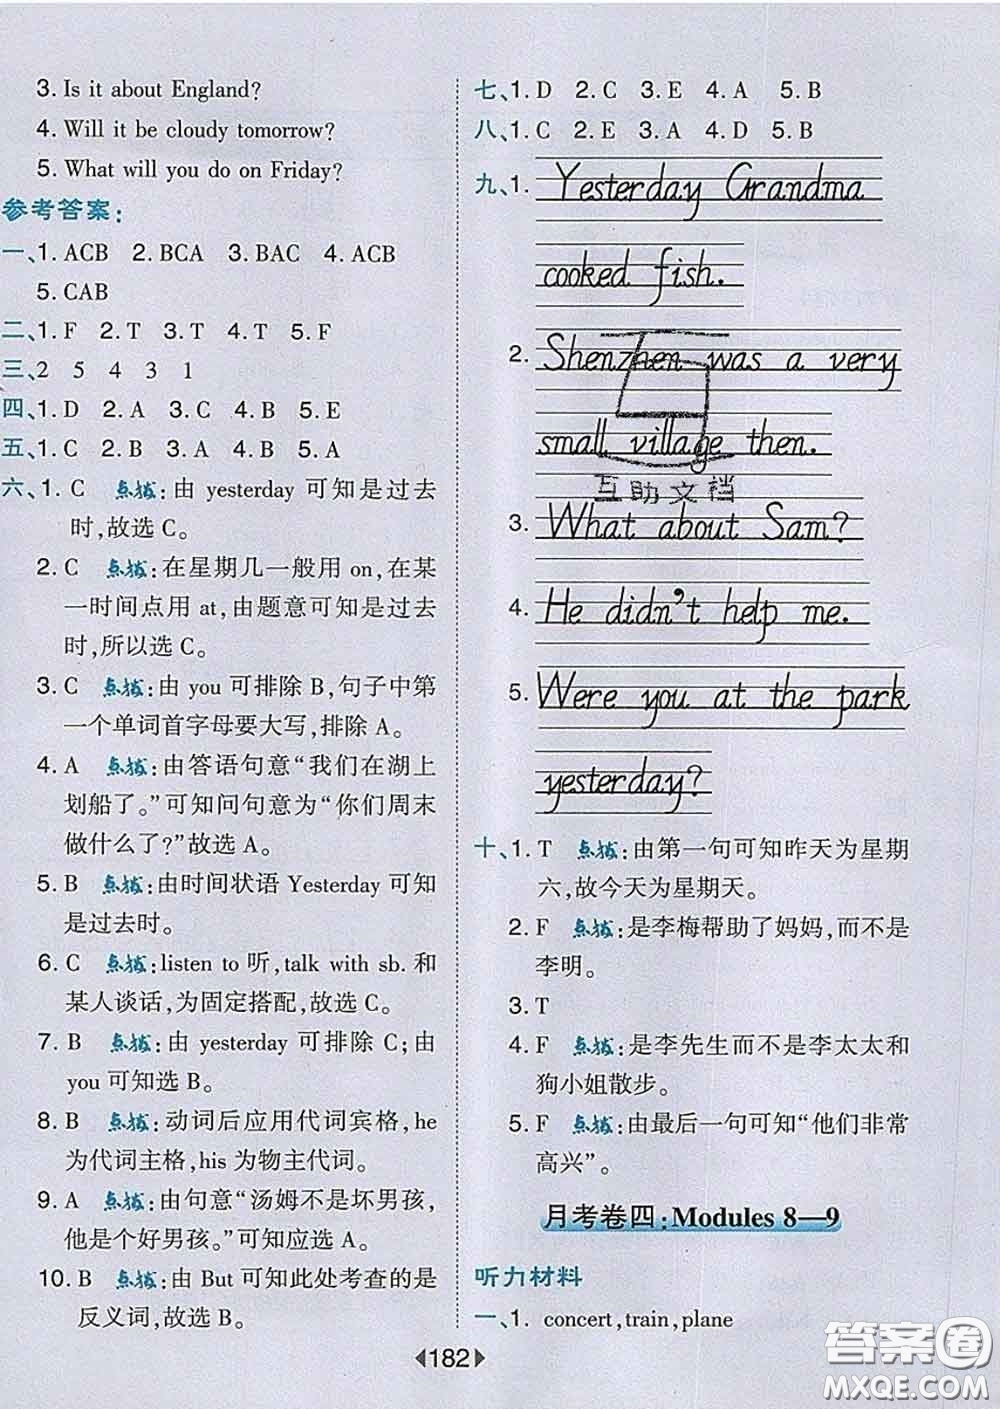 3. Is it about England?
4. Will it be cloudy tomorrow?
5. What will you do on Friday?
参考答案:
一、1. ACB 2. BCA 3. BAC 4. ACB
5. CAB
二、1. F 2. T 3. T 4. T 5. F
三、2 5 4 3 1
四、1. D 2. A 3. C 4. B 5. E
五、1. C 2. B 3. A 4. B 5. A
六、1. C 点拨:由 yesterday 可知是过去
时,故选 C。
2. C 点拨:在星期几一般用 on,在某
一时间点用 at,由题意可知是过去
时,所以选 C。
3. C 点拨:由 you 可排除 B,句子中第
一个单词首字母要大写,排除 A。
4. A 点拨:由答语句意“我们在湖上
划船了。”可知问句意为“你们周末
做什么了?”故选 A。
5. B 点拨:由时间状语 Yesterday 可知
是过去时。
6. C 点拨:listen to 听,talk with sb. 和
某人谈话,为固定搭配,故选 C。
7. B 点拨:由 yesterday 可排除 C;由
you 可知选 B。
8. B 点拨:动词后应用代词宾格,he
为代词主格,his 为物主代词。
9. A 点拨:由句意“汤姆不是坏男孩,
他是个好男孩。”可知应选 A。
10. B 点拨:由 But 可知此处考查的是
反义词,故选 B。
七、1. D 2. C 3. E 4. A 5. B
八、1. C 2. E 3. A 4. D 5. B
九、1. Yesterday Grandma
cooked fish.
2. Shenzhen was a very
small village then.
互助文档
3. What about Sam?
4. He didn't help me.
5. Were you at the park
yesterday?
十、1. T 点拨:由第一句可知昨天为星期
六,故今天为星期天。
2. F 点拨:是李梅帮助了妈妈,而不是
李明。
3. T
4. F 点拨:是李先生而不是李太太和
狗小姐散步。
5. F 点拨:由最后一句可知“他们非常
高兴”。
月考卷四:Modules 8—9
听力材料
一、1. concert,train,plane
182
答案圈
MXQE.COM